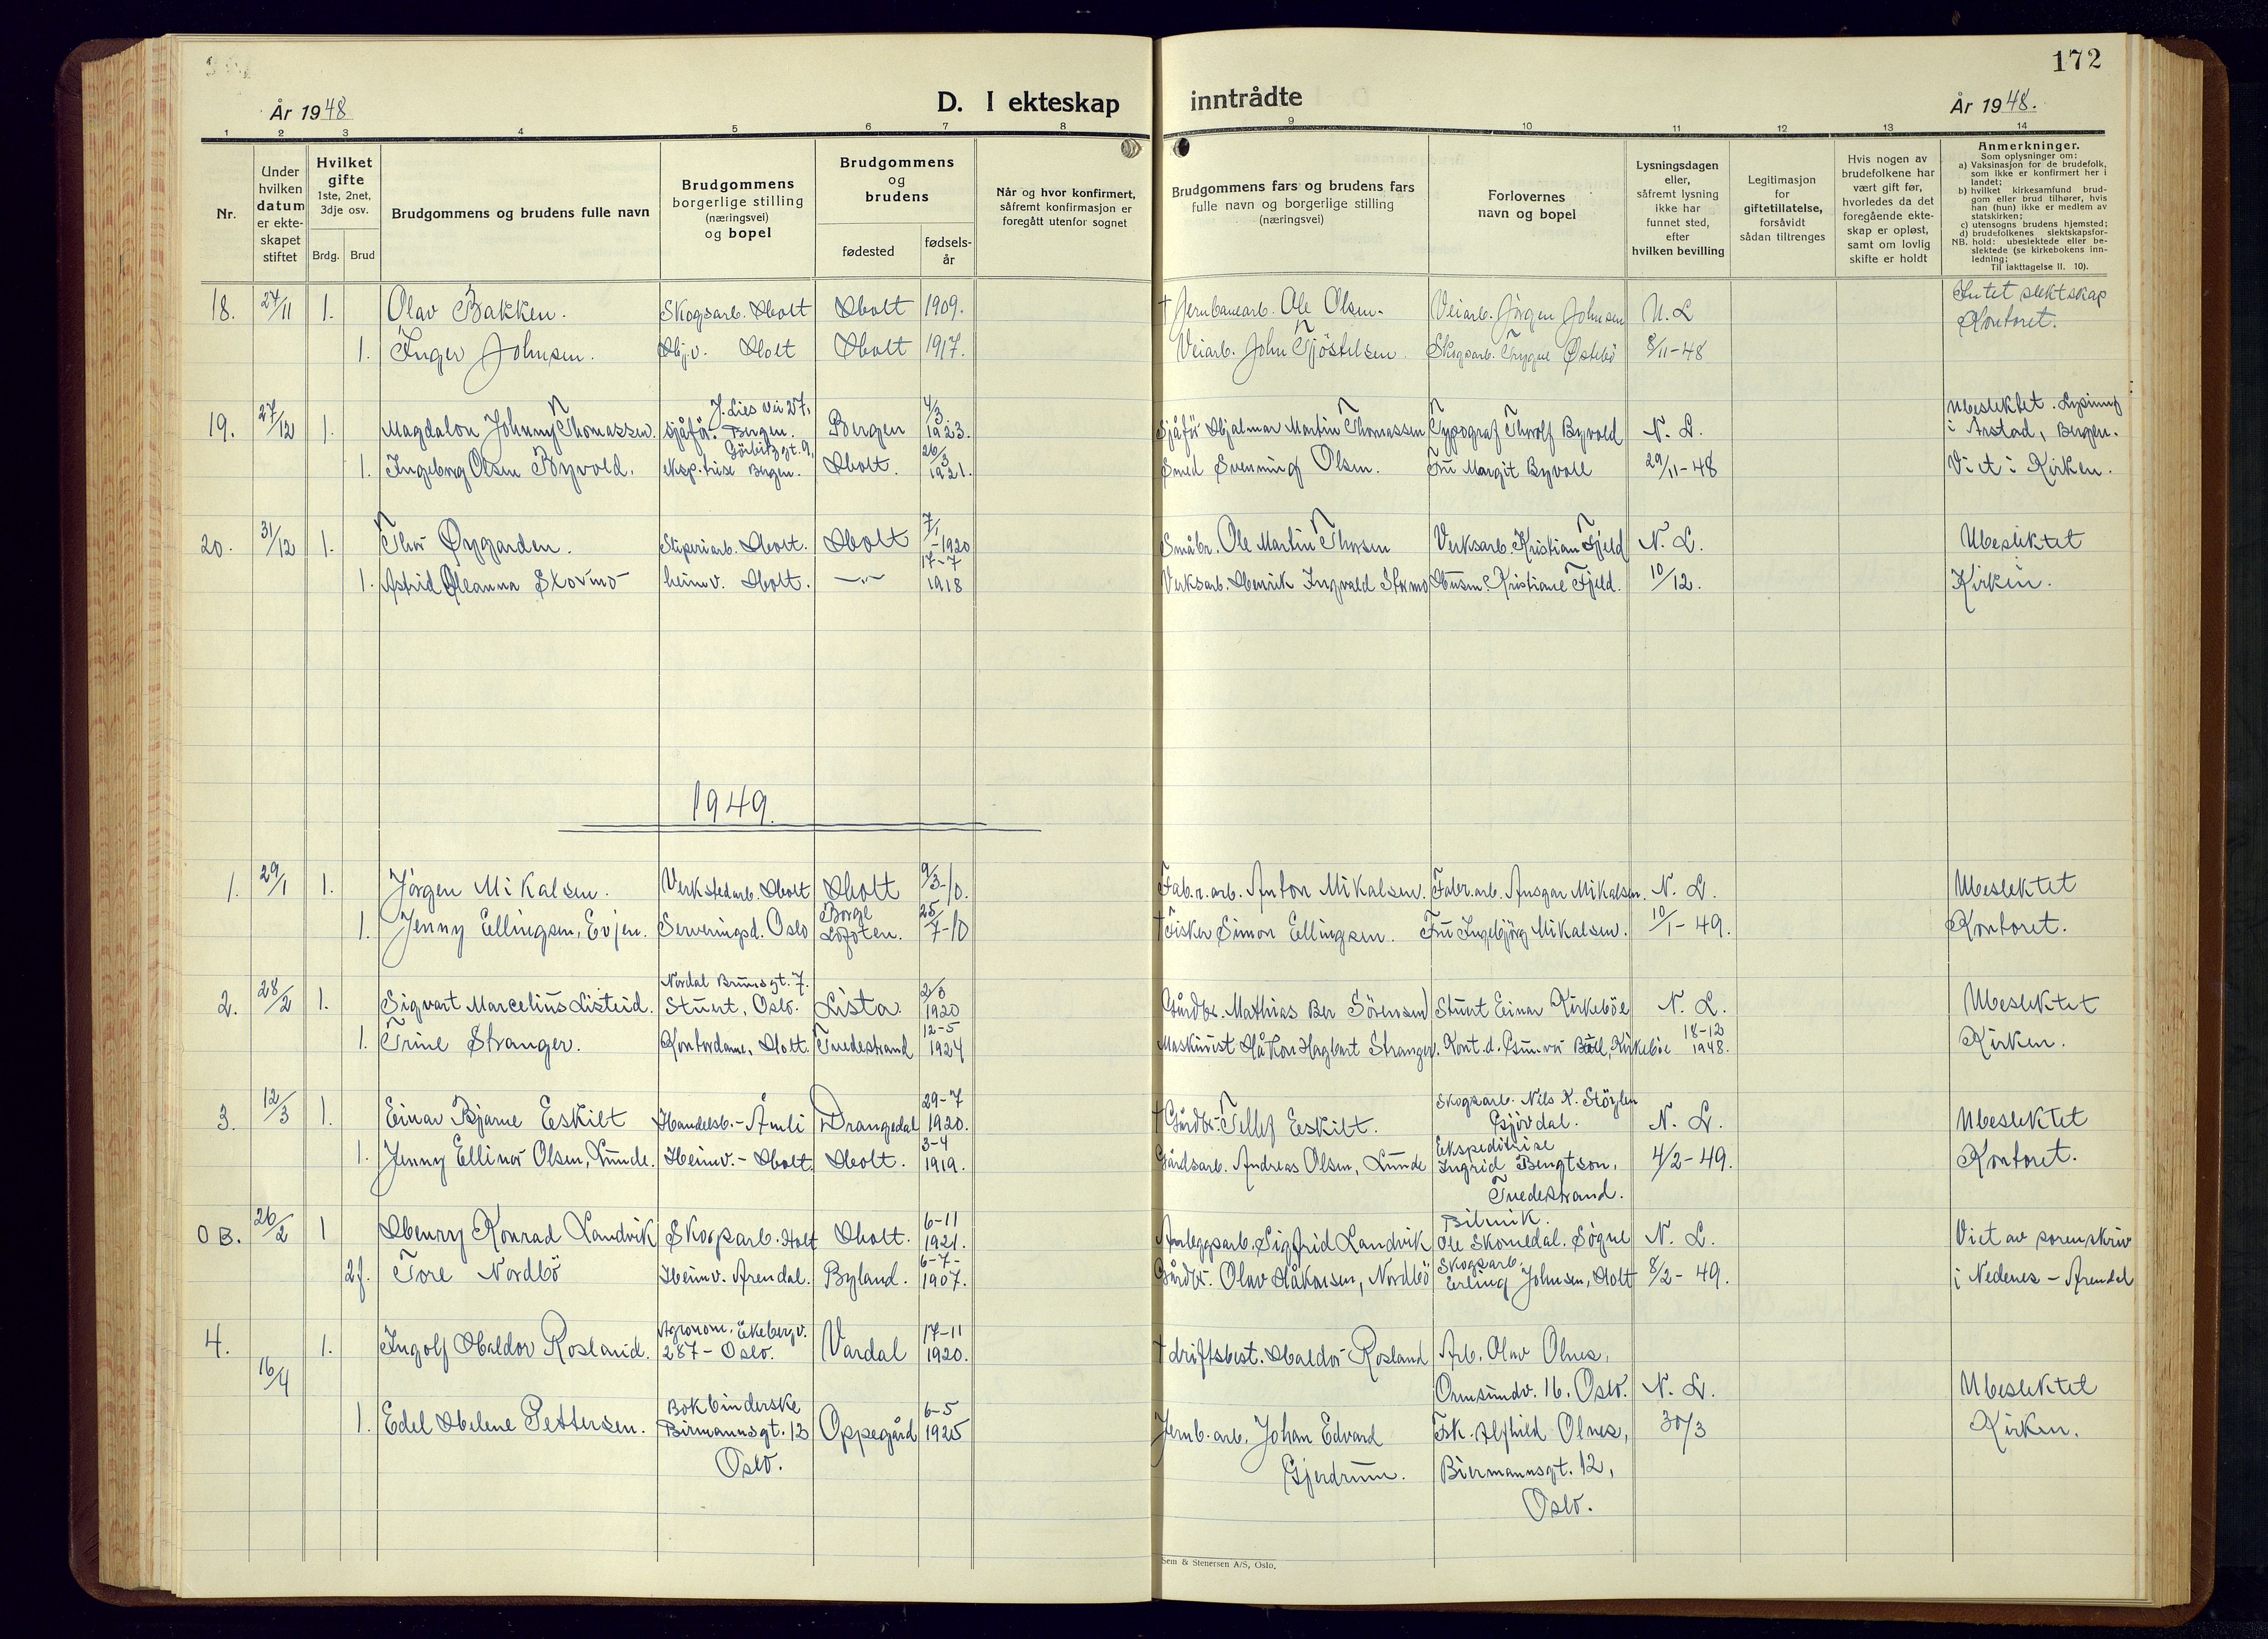 172
År 1948
D. I ekteskap inntrådte
År 1948.
1 2 3 4 5 6 7 8 9 10 11 12 13 14
Nr.
Under hvilken datum er ekteskapet stiftet
Hvilket gifte 1ste, 2net, 3dje osv.
Brdg. Brud
Brudgommens og brudens fulle navn
Brudgommens borgerlige stilling (næringsvei) og bopel
Brudgommens og brudens
fødested fødsels-år
Når og hvor konfirmert, såfremt konfirmasjon er foregått utenfor sognet
Brudgommens fars og brudens fars fulle navn og borgerlige stilling (næringsvei)
Forlovernes navn og bopel
Lysningsdagen eller, såfremt lysning ikke har funnet sted, efter hvilken bevilling
Legitimasjon for giftetillatelse, forsåvidt sådan tiltrenges
Hvis nogen av brudefolkene har vært gift før, hvorledes da det foregående ekteskap er opløst, samt om lovlig skifte er holdt
Anmerkninger.
Som oplysninger om:
a) Vaksinasjon for de brudefolk, som ikke er konfirmert her i landet;
b) hvilket kirkesamfund brudgom eller brud tilhører, hvis han (hun) ikke er medlem av statskirken;
c) utensogns brudens hjemsted;
d) brudefolkenes slektskapsforhold: ubeslektede eller beslektede (se kirkebokens innledning;
NB. Til iakttagelse II. 10).
18. 27/11 1. Olav Bakken. Skogsarb. Holt Holt 1909. † Jernbanearb. Ole Olsen. Veiarb. Jörgen Johnsen N. L Intet slektskap
Kontoret.
1. Inger Johnsen. Hj.v. Holt Holt 1917. Veiarb. John Tjöstelsen. Skogsarb. Trygve Østebö 8/11-48
19. 27/12 1. Magdalon Johnny Thomassen. sjåfør. J. Lies vei 27, Bergen. Bergen 4/3 1923. Sjåfør Hjalmar Martin Thomassen Typograf Thorolf Byvold N. L. Ubeslektet. Lysning
i Årstad, Bergen.
1. Ingeborg Olsen Byvold. eksp.trise Görbitzgt. 9, Bergen. Holt. 26/3 1921. Smed Svenning Olsen. Fru Margit Byvoll 29/11-48 Viet i Kirken.
20. 31/12 1. Thor Øygarden. Sliperiarb. Holt. Holt 7/1-1920 Småbr. Ole Martin Thorsen Verksarb. Kristian Fjeld N. L. Ubeslektet
1. Astrid Oleanna Skovmo heimv. Holt. —"— 17-7 1918 Verksarb. Henrik Ingvald Husm. Kristiane Fjeld. 10/12. Kirken.
1949.
1. 29/1 1. Jörgen Mikalsen. Verkstedarb. Holt Holt 9/3-10. Fab.r.arb. Anton Mikalsen. Fabr.arb. Ansgar Mikalsen. N. L. Ubeslektet
1. Jenny Ellingsen, Evjen. Serveringsd. Oslo Borge Lofoten. 25/7-10 † Fisker Simon Ellingsen. Fru Ingebjörg Mikalsen. 10/1-49. Kontoret.
2. 28/2 1. Sigvart Marcelius Listeid. Nordal Brunsgt. 7. Stuert, Oslo. Lista. 2/8 1920 Gårdbr. Mathias Ber Sörensen Stuert Einar Kirkeböe N. L. Ubeslektet
1. Trine Stranger. Kontordame, Holt. Tvedestrand 12-5 1924 Maskinist Håkon Hagbart Stranger. Kont.d. Gunvor Kirkeböe 18-12 1948. Kirken.
3. 12/3 1. Einar Bjarne Eskilt Handelsb.-Åmli Drangedal 29-7 1920. † Gårdbr. Tellef Eskilt. Skogsarb. Nils K. Gjövdal. N. L. Ubeslektet
1. Jenny Ellinor Olsen, Lunde. Heimv.-Holt. Holt. 3-4 1919. Gårdsarb. Andreas Olsen, Lunde Ekspeditrise Ingrid Bengtson, Tvedestrand. 4/2-49. Kontoret.
OB. 26/2 1 Henry Konrad Landvik Skogsarb. Holt Holt. 6-11 1921. Anleggsarb. Sigfrid Landvik Bilmek. Ole Skomedal. Søgne N. L. Viet av sorenskriv
2f. Tore Nordbö Heimv. Arendal. Byland. 6-7-1907. Gårdbr. Olav Håkonsen, Nordbö Skogsarb. Erling Johnsen, Holt 8/2-49. i Nedenes-Arendal
4. 16/4 1. Ingolf Haldor Rosland. Agronom. Ekebergv. 287-Oslo. Vardal 17-11 1920. † driftsbest. Haldor Rosland Arb. Olav Olnes, Ormsundv. 16. Oslo. N. L. Ubeslektet
1. Edel Helene Pettersen. Bokbinderske Birmannsgt. 12 Oslo. Oppegård 6-5 1925 Jernb.arb. Johan Edvard Gjerdrum. Frk. Alfhild Olnes, Biermannsgt. 12, Oslo. 30/3 Kirken.
Sem & Stenersen A/S, Oslo.